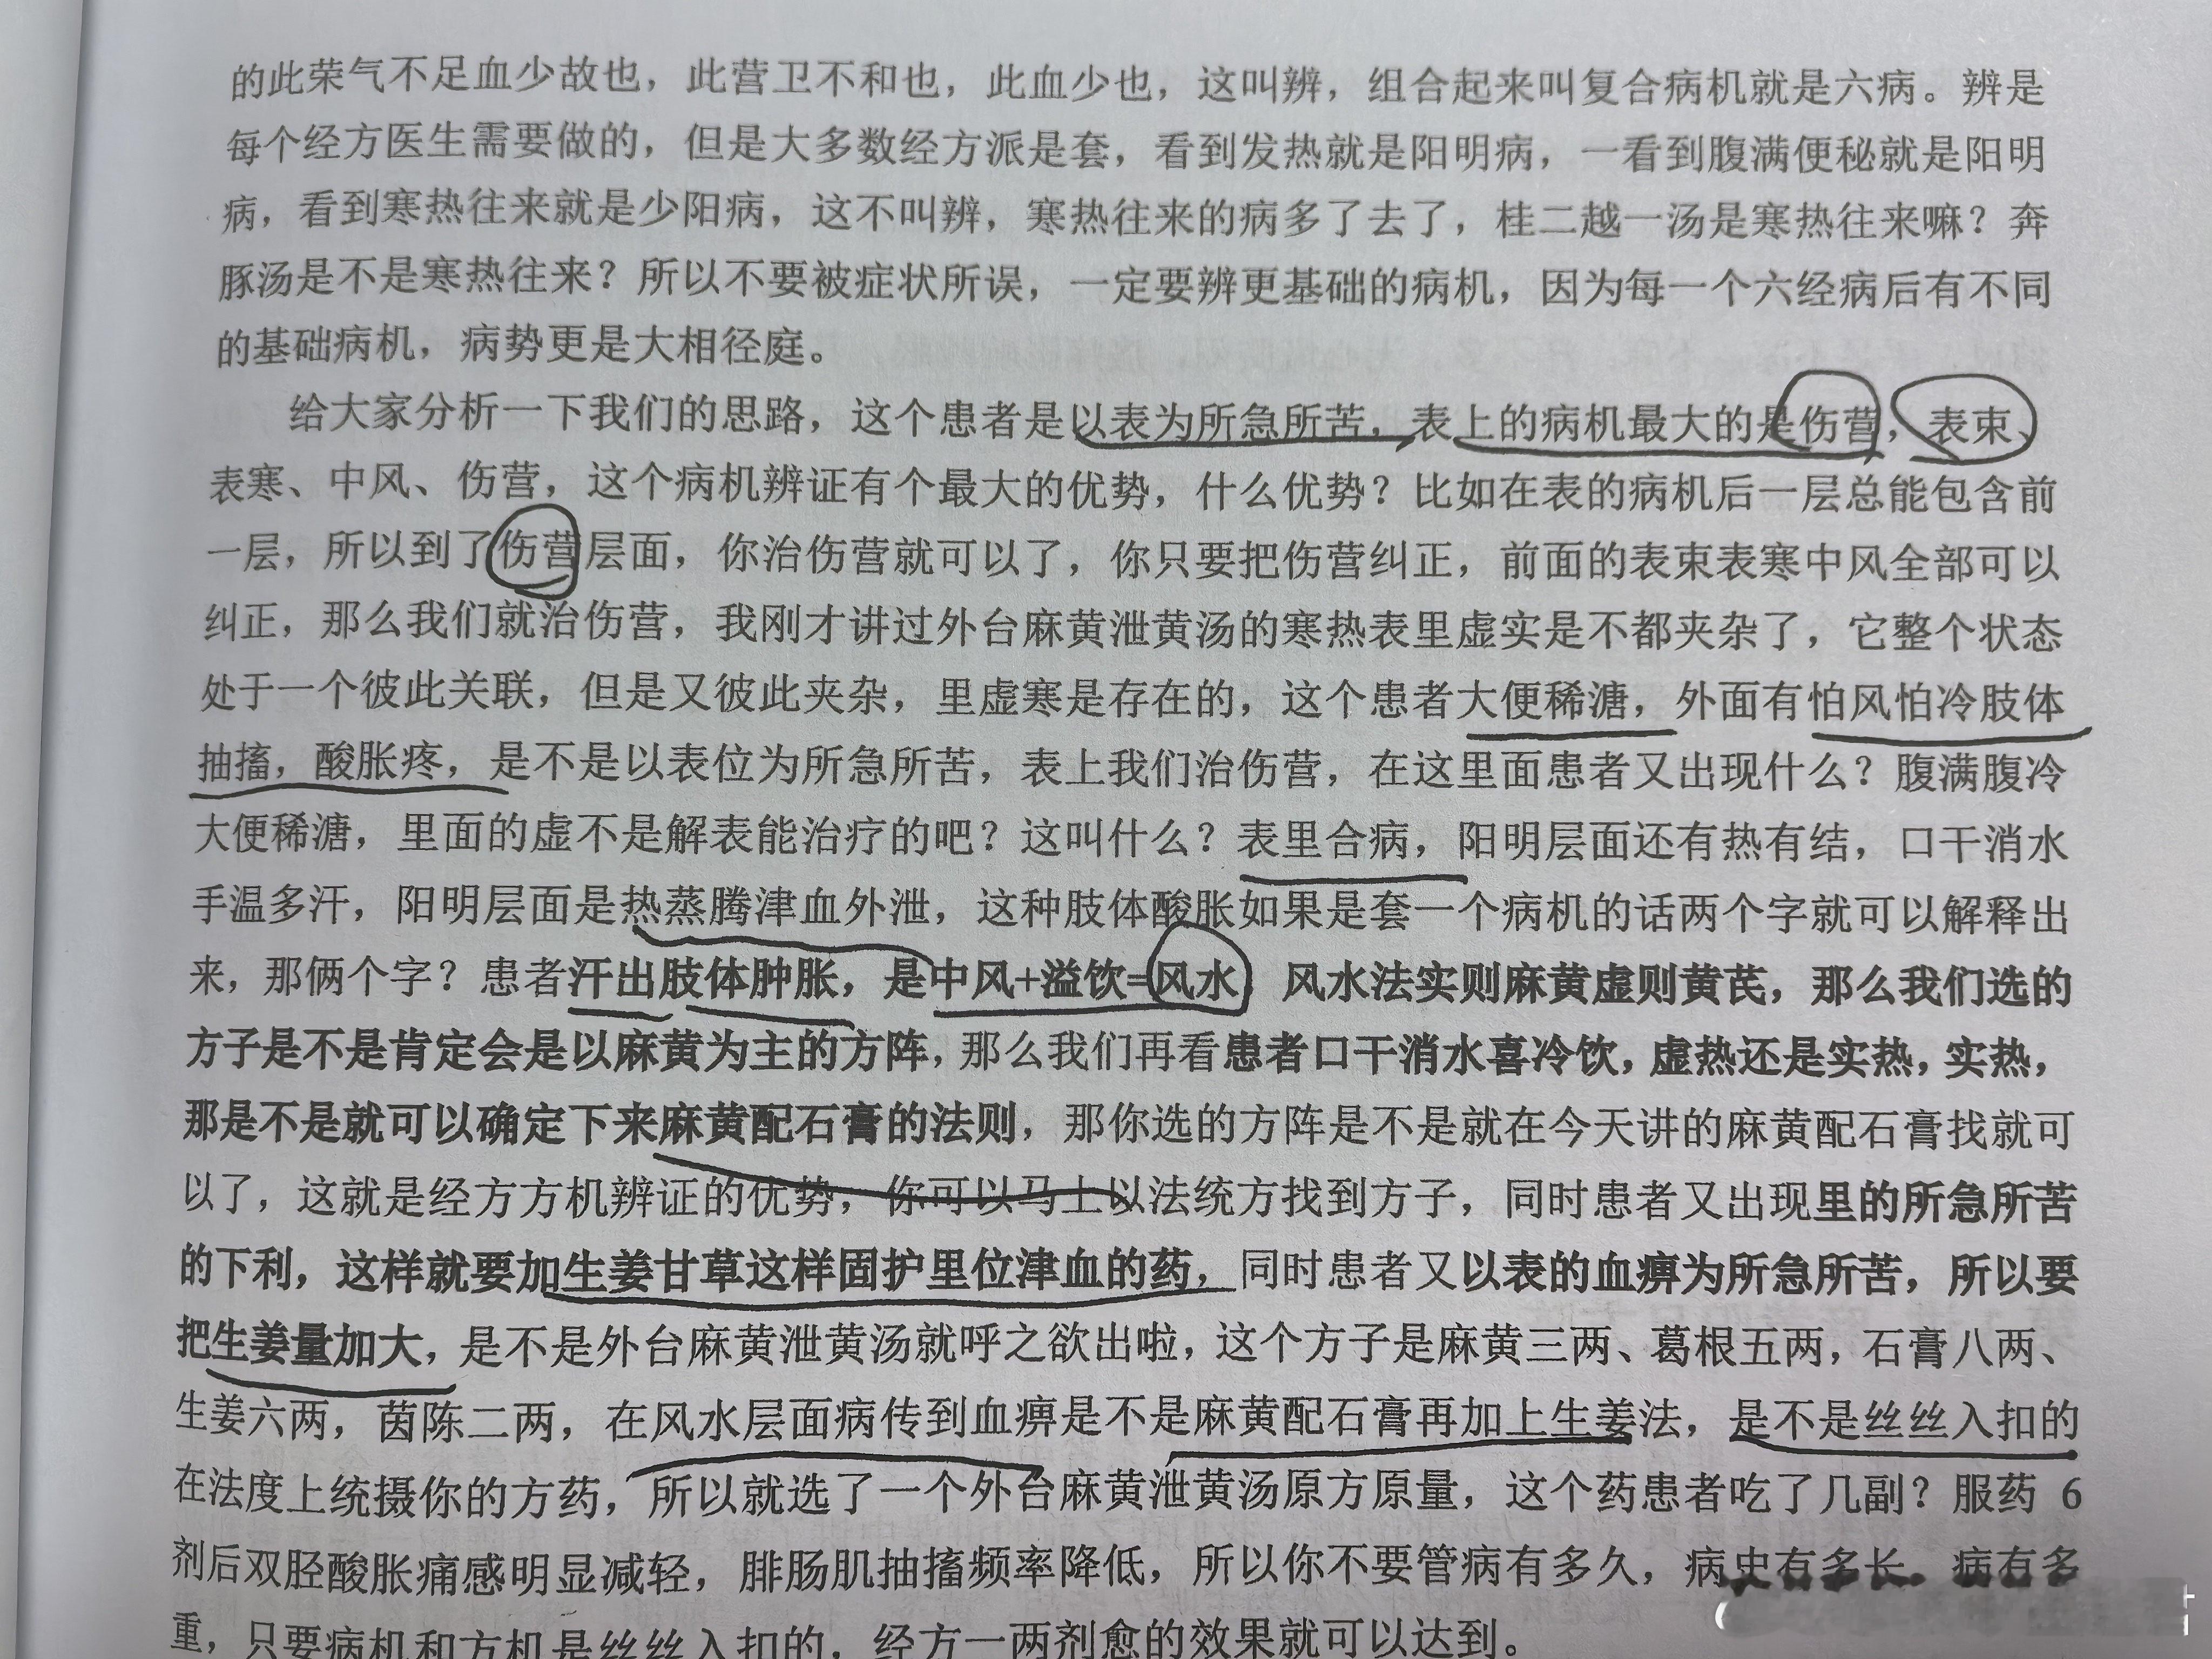 的此荣气不足血少故也，此营卫不和也，此血少也，这叫辨，组合起来叫复合病机就是六病。辨是
每个经方医生需要做的，但是大多数经方派是套，看到发热就是阳明病，一看到腹满便秘就是阳明
病，看到寒热往来就是少阳病，这不叫辨，寒热往来的病多了去了，桂二越一汤是寒热往来嘛？奔
豚汤是不是寒热往来？所以不要被症状所误，一定要辨更基础的病机，因为每一个六经病后有不同
的基础病机，病势更是大相径庭。
给大家分析一下我们的思路，这个患者是以表为所急所苦，表上的病机最大的是伤营，表束、
表寒、中风、伤营，这个病机辨证有个最大的优势，什么优势？比如在表的病机后一层总能包含前
一层，所以到了伤营层面，你治伤营就可以了，你只要把伤营纠正，前面的表束表寒中风全部可以
纠正，那么我们就治伤营，我刚才讲过外台麻黄泄黄汤的寒热表里虚实是不都夹杂了，它整个状态
处于一个彼此关联，但是又彼此夹杂，里虚寒是存在的，这个患者大便稀溏，外面有怕风怕冷肢体
抽搐，酸胀疼，是不是以表位为所急所苦，表上我们治伤营，在这里面患者又出现什么？腹满腹冷
大便稀溏，里面的虚不是解表能治疗的吧？这叫什么？表里合病，阳明层面还有热有结，口干消水
手温多汗，阳明层面是热蒸腾津血外泄，这种肢体酸胀如果是套一个病机的话两个字就可以解释出
来，那俩个字？患者汗出肢体肿胀，是中风+溢饮=风水 风水法实则麻黄虚则黄芪，那么我们选的
方子是不是肯定会是以麻黄为主的方阵，那么我们再看患者口干消水喜冷饮，虚热还是实热，实热，
那是不是就可以确定下来麻黄配石膏的法则，那你选的方阵是不是就在今天讲的麻黄配石膏找就可
以了，这就是经方方机辨证的优势，你可以马上以法统方找到方子，同时患者又出现里的所急所苦
的下利，这样就要加生姜甘草这样固护里位津血的药，同时患者又以表的血痹为所急所苦，所以要
把生姜量加大，是不是外台麻黄泄黄汤就呼之欲出啦，这个方子是麻黄三两、葛根五两，石膏八两、
生姜六两，茵陈二两，在风水层面病传到血痹是不是麻黄配石膏再加上生姜法，是不是丝丝入扣的
在法度上统摄你的方药，所以就选了一个外台麻黄泄黄汤原方原量，这个药患者吃了几副？服药 6
剂后双胫酸胀痛感明显减轻，腓肠肌抽搐频率降低，所以你不要管病有多久，病史有多长，病有多
重，只要病机和方机是丝丝入扣的，经方一两剂愈的效果就可以达到。